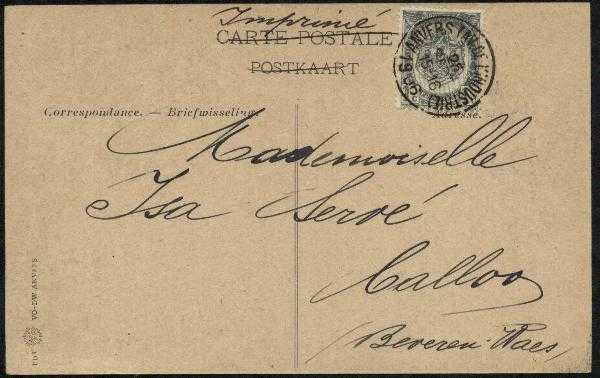 Imprimé
CARTE POSTALE
POSTKAART
ANVERS
Correspondance. — Briefwisseling.
Adresse.
Mademoiselle
Isa Servé
Calloo
Beveren-Waes
VO-DW ANVERS